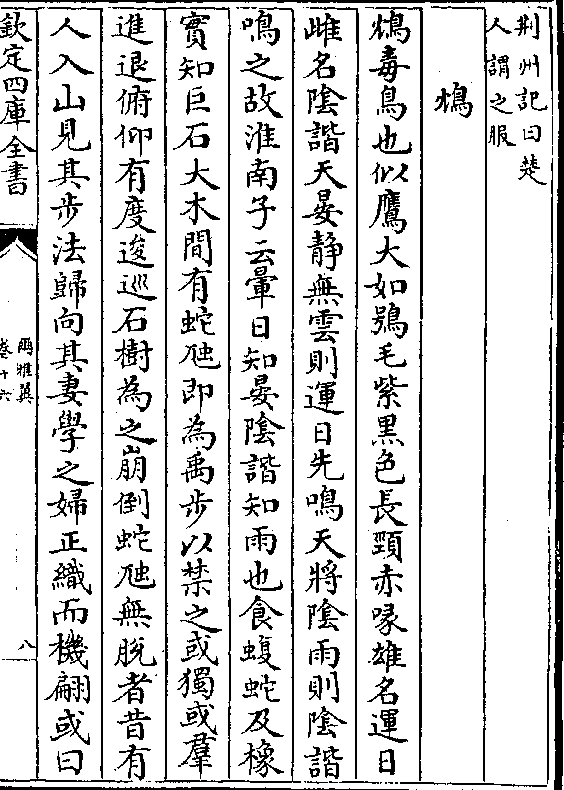 荆州記曰楚
人謂之服
鴆
鴆毒鳥也似鷹大如鴞毛紫黑色長頸赤喙雄名運日
雌名隂諧天晏静無雲則運日先鳴天將隂雨則隂諧
鳴之故淮南子云暈日知晏隂諧知雨也食蝮蛇及橡
實知巨石大木間有蛇虺即為禹步以禁之或獨或羣
進退俯仰有度逡巡石樹為之崩倒蛇虺無脱者昔有
人入山見其步法歸向其妻學之婦正織而機翩或曰
欽定四庫全書
爾雅翼
卷十六
八